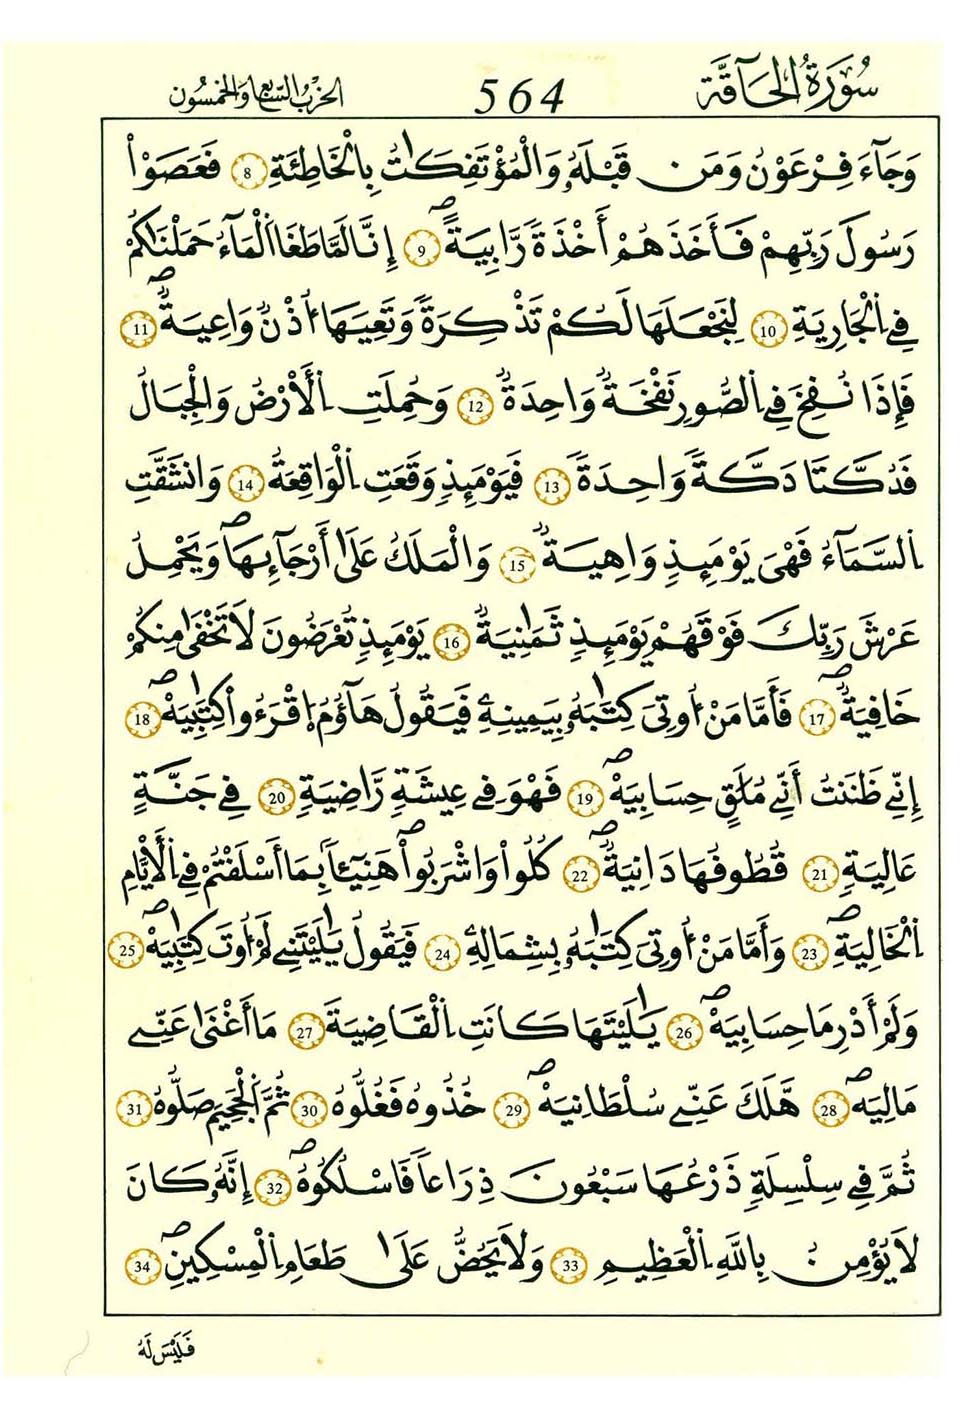 سُورَةُ الحَآقَّة
564
الحزب السابع والخمسون
وَجَآءَ فِرْعَوْنُ وَمَن قَبْلَهُۥ وَالْمُؤْتَفِكَٰتُ بِالْخَاطِئَةِ 8 فَعَصَوْاْ
رَسُولَ رَبِّهِمْ فَأَخَذَهُمُۥٓ أَخْذَةٗ رَّابِيَةًۖ 9 إِنَّا لَمَّا طَغَا اَلْمَآءُ حَمَلْنَٰكُمْ
فِے اِلْجَارِيَةِ 10 لِنَجْعَلَهَا لَكُمْ تَذْكِرَةٗ وَتَعِيَهَآ أُذْنٞ وَاعِيَةٞۖ 11
فَإِذَا نُفِخَ فِے اِلصُّورِ نَفْخَةٞ وَاحِدَةٞ 12 وَحُمِلَتِ اِلْأَرْضُ وَالْجِبَالُ
فَدُكَّتَا دَكَّةٗ وَاحِدَةٗ 13 فَيَوْمَئِذٖ وَقَعَتِ اِلْوَاقِعَةُ 14 وَانشَقَّتِ
اِلسَّمَآءُ فَهْىَ يَوْمَئِذٖ وَاهِيَةٞ 15 وَالْمَلَكُ عَلَىٰٓ أَرْجَآئِهَاۖ وَيَحْمِلُ
عَرْشَ رَبِّكَ فَوْقَهُمْ يَوْمَئِذٖ ثَمَٰنِيَةٞ 16 يَوْمَئِذٖ تُعْرَضُونَ لَا تَخْفَىٰ مِنكُمْ
خَافِيَةٞۖ 17 فَأَمَّا مَنُ ا۟وتِىَ كِتَٰبَهُۥ بِيَمِينِهِۦ فَيَقُولُ هَآؤُمُ اُ۪قْرَءُواْ كِتَٰبِيَهْۖ 18
إِنِّے ظَنَنتُ أَنِّے مُلَٰقٍ حِسَابِيَهْۖ 19 فَهْوَ فِے عِيشَةٖ رَّاضِيَةٖ 20 فِے جَنَّةٍ
عَالِيَةٖ 21 قُطُوفُهَا دَانِيَةٞۖ 22 كُلُواْ وَاشْرَبُواْۖ هَنِيٓـٔاَۢ بِمَآ أَسْلَفْتُمْ فِے اِلْأَيَّامِ
اِلْخَالِيَةِۖ 23 وَأَمَّا مَنُ ا۟وتِىَ كِتَٰبَهُۥ بِشِمَالِهِۦ 24 فَيَقُولُ يَٰلَيْتَنِے لَمُ ا۟وتَ كِتَٰبِيَهْۖ 25
وَلَمْ أَدْرِ مَا حِسَابِيَهْۖ 26 يَٰلَيْتَهَا كَانَتِ اِلْقَاضِيَةَ 27 مَآ أَغْنَىٰ عَنِّے
مَالِيَهْۖ 28 هَّلَكَ عَنِّے سُلْطَانِيَهْۖ 29 خُذُوهُ فَغُلُّوهُ 30 ثُمَّ اَلْجَحِيمَ صَلُّوهُ 31
ثُمَّ فِے سِلْسِلَةٖ ذَرْعُهَا سَبْعُونَ ذِرَاعاٗ فَاسْلُكُوهُۖ 32 إِنَّهُۥ كَانَ
لَا يُؤْمِنُ بِاللَّهِ اِلْعَظِيمِ 33 وَلَا يَحُضُّ عَلَىٰ طَعَامِ اِلْمِسْكِينِۖ 34
فَلَيْسَ لَهُ